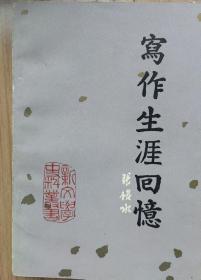 寫作生涯回憶
張恨水
新文學
史料叢書